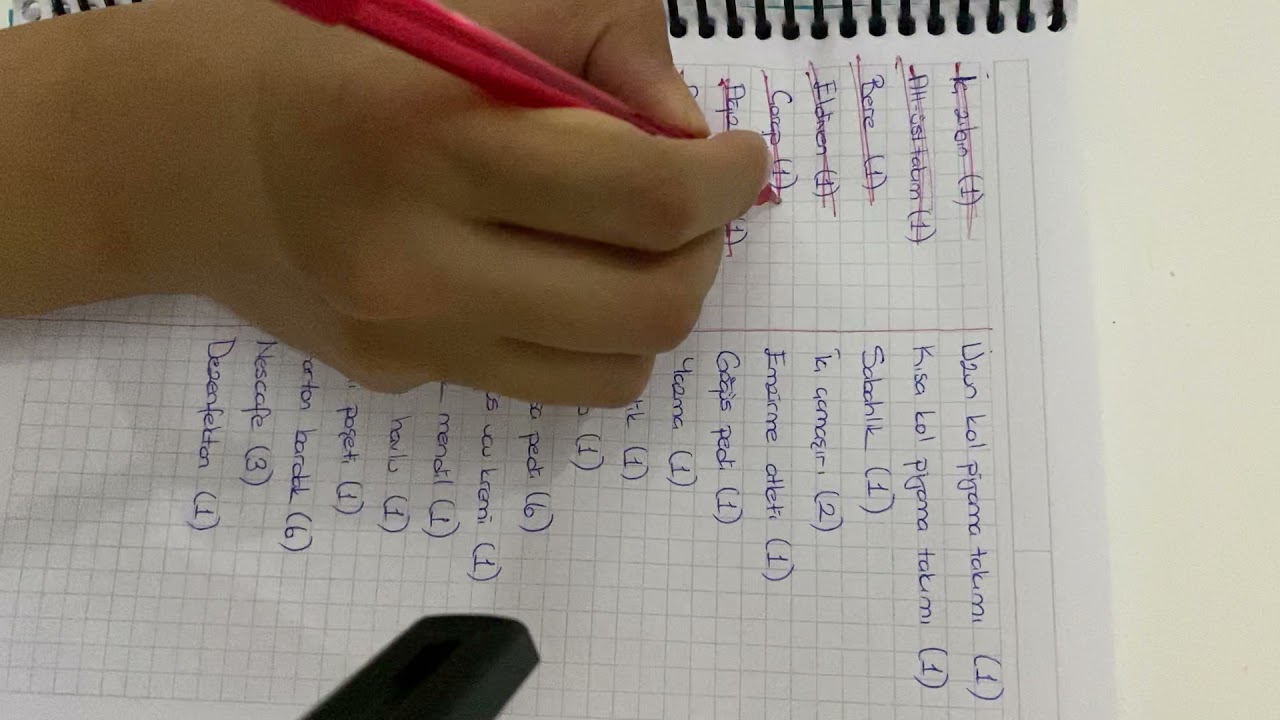 İç zıbın (1)
Alt-üst takım (1)
Bere (1)
Eldiven (1)
Çorap (1)
(1)
Uzun kol pijama takımı (1)
Kısa kol pijama takımı (1)
Sabahlık (1)
İç çamaşırı (2)
Emzirme atleti (1)
Göğüs pedi (1)
Yazma (1)
(1)
(1)
pedi (6)
ucu kremi (1)
mendil (1)
havlu (1)
poşeti (1)
karton bardak (6)
Nescafe (3)
Dezenfektan (1)